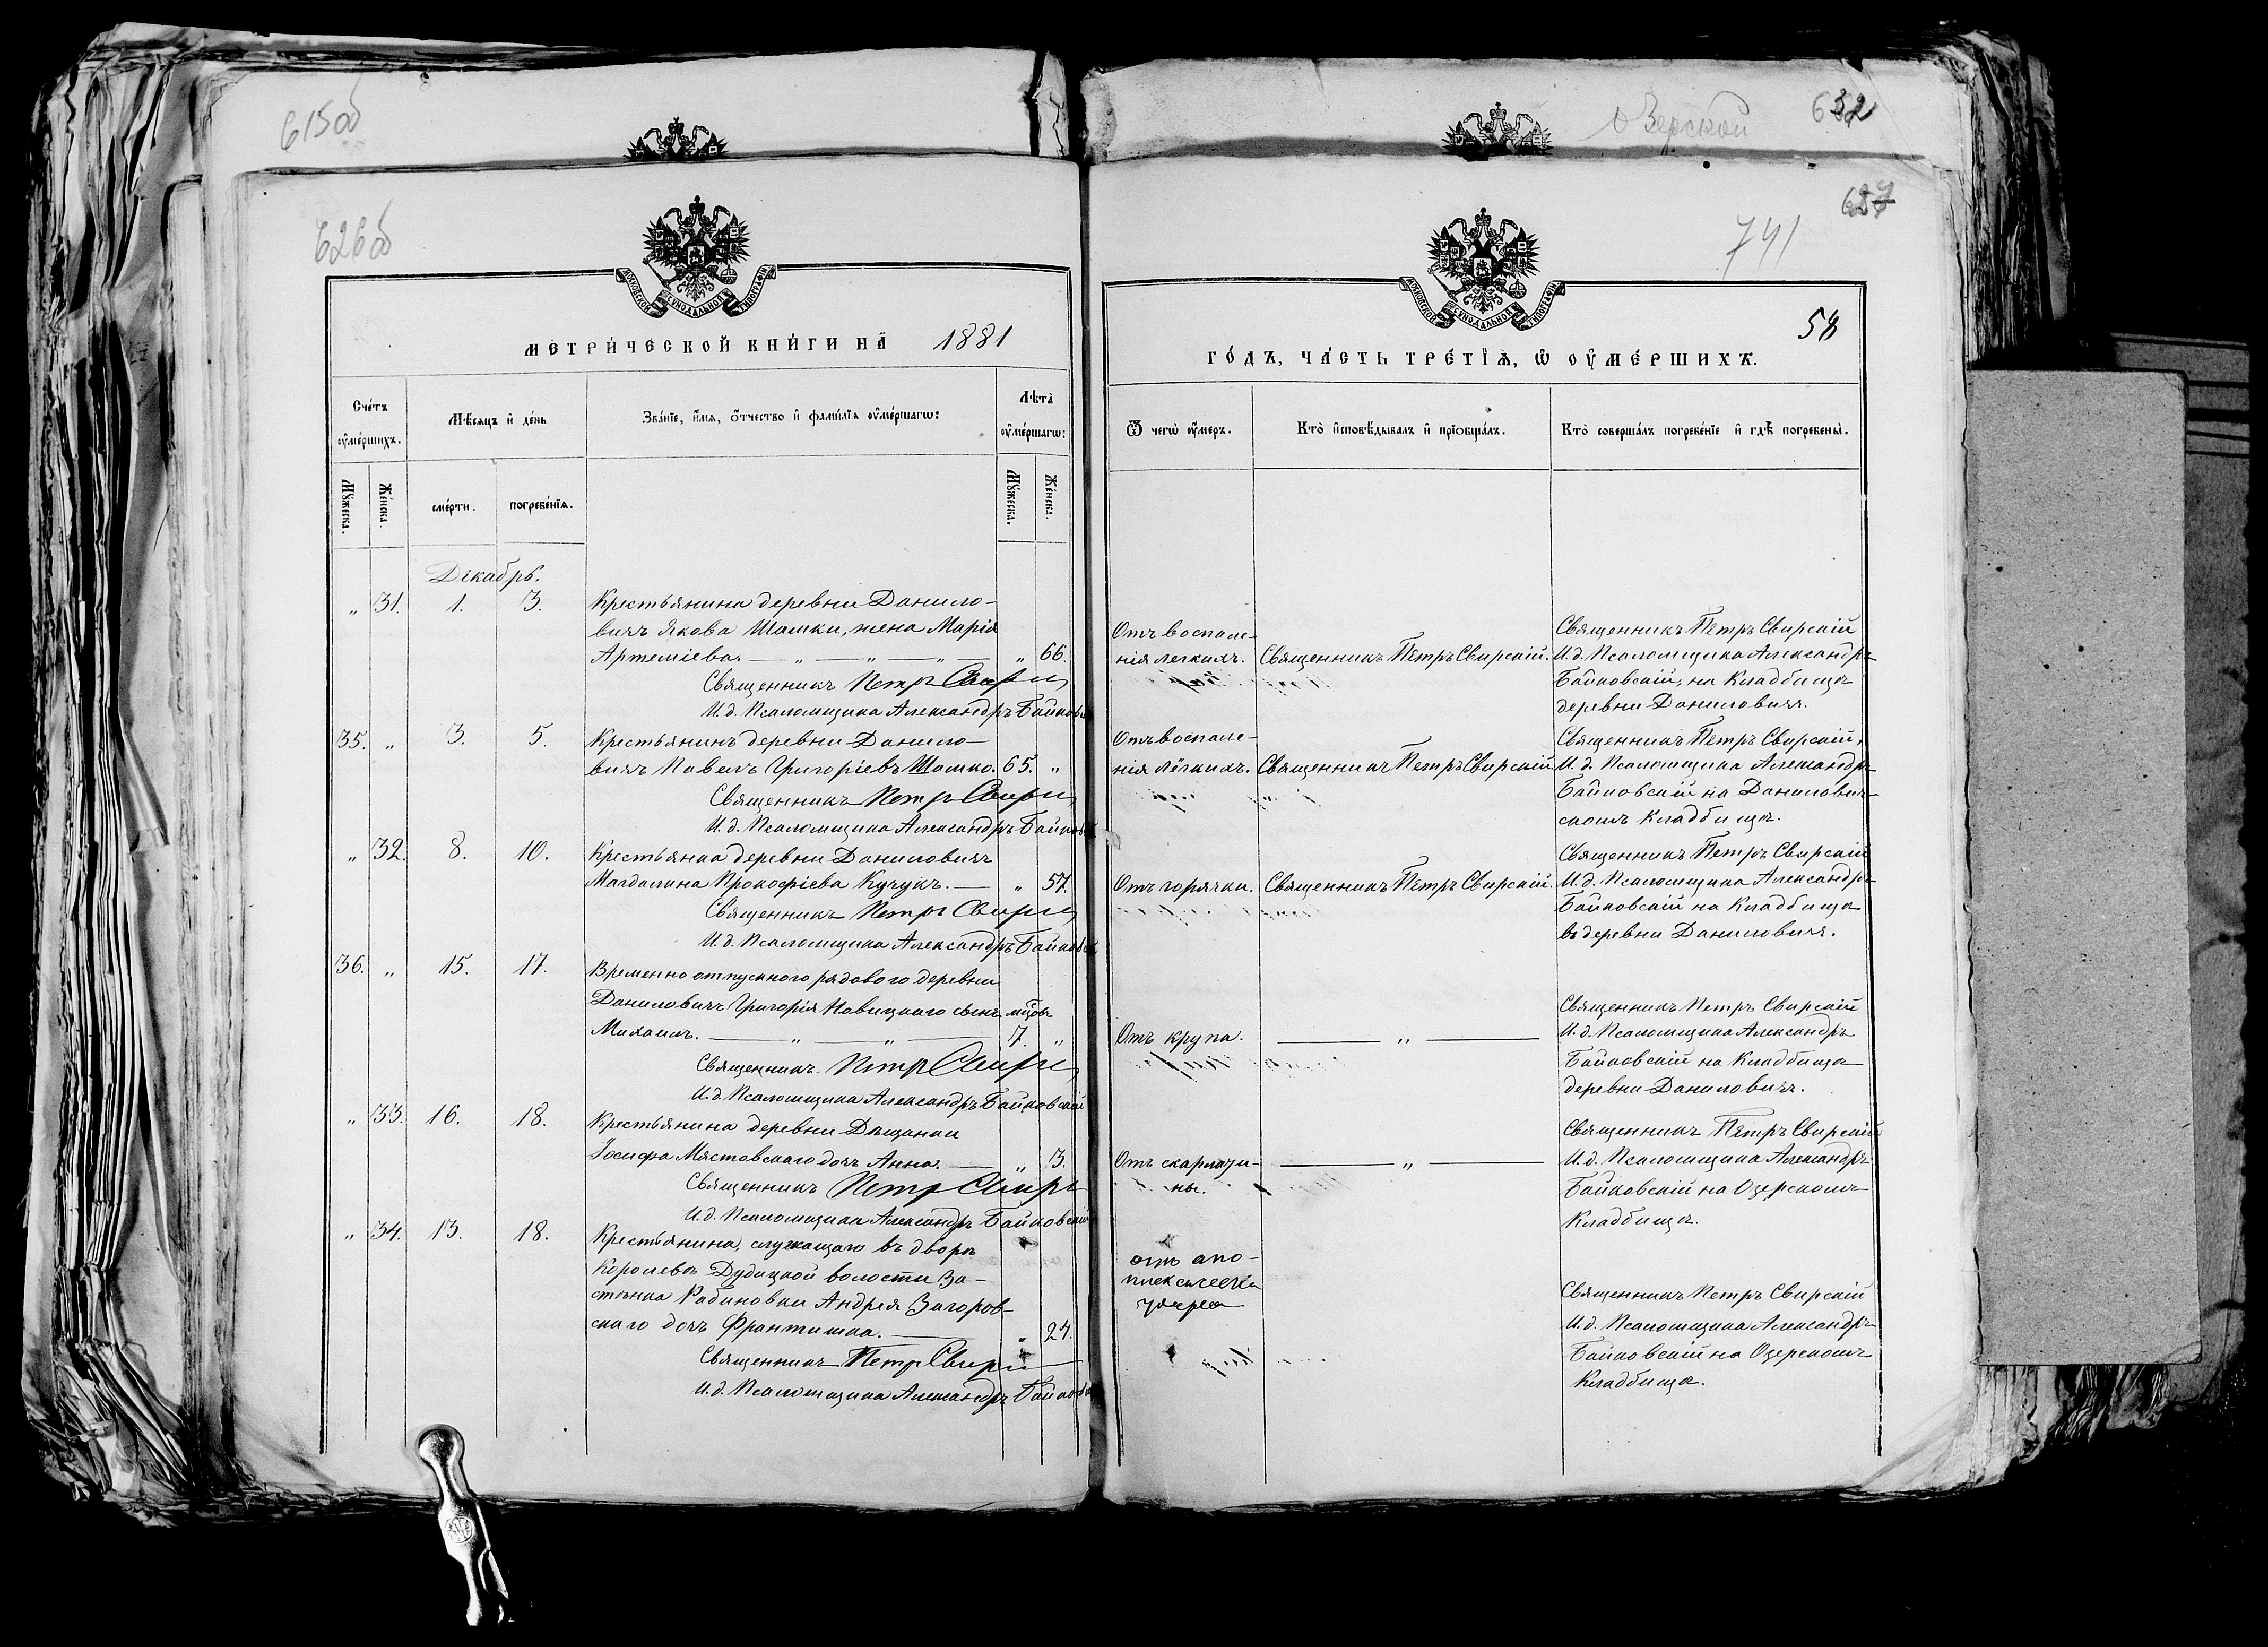 615об
озерской
632
626об
741
МОСКОВСКОЙ СѴНОДАЛЬНОЙ ТИПОГРАФІИ
МОСКОВСКОЙ СѴНОДАЛЬНОЙ ТИПОГРАФІИ
58
МЕТРИ́ЧЕСКОЙ КНИ́ГИ НА̀ 1881
ГО́ДЪ, ЧА́СТЬ ТРЕ́ТІѦ, Ѡ ОУ҆МЕ́РШИХЪ.
Сче́тъ оу҆ме́ршихъ.
Мѣ́сяцъ и҆ де́нь
Зва́нїе, и҆́мѧ, ѻ҆́тчество и҆ фами́лїѧ оу҆ме́ршагѡ:
Лѣ́та оу҆ме́ршагѡ:
Ѿ чегѡ̀ оу҆́меръ.
Кто̀ и҆сповѣ́дывалъ и҆ прїѡбща́лъ.
Кто̀ соверша́лъ погребе́нїе и҆ гдѣ̀ погребены̀.
Мꙋ́жеска.
Же́нска.
сме́рти.
погребе́нїѧ.
Мꙋ́жеска.
Же́нска.
Декабрь.
„ 31. 1. 3. Крестьянина деревни Данило-
вичъ Якова Шамки, жена Марія
Артеміева. — „ — „ — „ — „ 66.
Священникъ Петръ
И. д. Псаломщика Александръ
Отъ воспале-
нія легкихъ.
Священникъ Петръ Свирскій.
Священникъ Петръ Свирскій
И. д. Псаломщика Александръ
Байковскій, на Кладбищѣ
деревни Даниловичъ.
35. „ 3. 5. Крестьянинъ деревни Данило-
вичъ Павелъ Григоріевъ Шамко. 65. „
Священникъ Петръ
И. д. Псаломщика Александръ
Отъ воспале-
нія лёгкихъ.
Священникъ Петръ Свирскій
Священникъ Петръ Свирскій,
И. д. Псаломщика Александръ
Байковскій на Данилович-
скомъ Кладбищѣ.
„ 32. 8. 10. Крестьянка деревни Даниловичъ
Магдалина Прокофіева Кучукъ. — „ 57.
Священникъ Петръ
И. д. Псаломщика Александръ
Отъ горячки.
Священникъ Петръ Свирскій.
Священникъ Петръ Свирскій
И. д. Псаломщика Александръ
Байковскій на Кладбищѣ
въ деревни Даниловичъ.
36. „ 15. 17. Временно отпускного рядового деревни
Даниловичъ Григорія Новицкаго сынъ мѣсц.
Михаилъ. — „ — „ — 7. „
Священникъ Петръ
И. д. Псаломщика Александръ Байковскій
Отъ крупа.
— „ —
Священникъ Петръ Свирскій
И. д. Псаломщика Александръ
Байковскій на Кладбищѣ
деревни Даниловичъ.
„ 33. 16. 18. Крестьянина деревни Дещанки
Іосифа Мястовскаго дочь Анна. — „ 3.
Священникъ Петръ
И. д. Псаломщика Александръ Байковскій
Отъ скарлати-
ны.
— „ —
Священникъ Петръ Свирскій
И. д. Псаломщика Александръ
Байковскій на Озерскомъ
Кладбищѣ.
„ 34. 13. 18. Крестьянина, служащаго въ дворѣ
Королевѣ Дудицкой волости За-
стѣнка Рабиновки Андрея Загоров-
скаго дочь Франтишка. — „ 24.
Священникъ Петръ
И. д. Псаломщика Александръ
отъ апо-
плексическ
удара
Священникъ Петръ Свирскій
И. д. Псаломщика Александръ
Байковскій на Озерскомъ
Кладбищѣ.